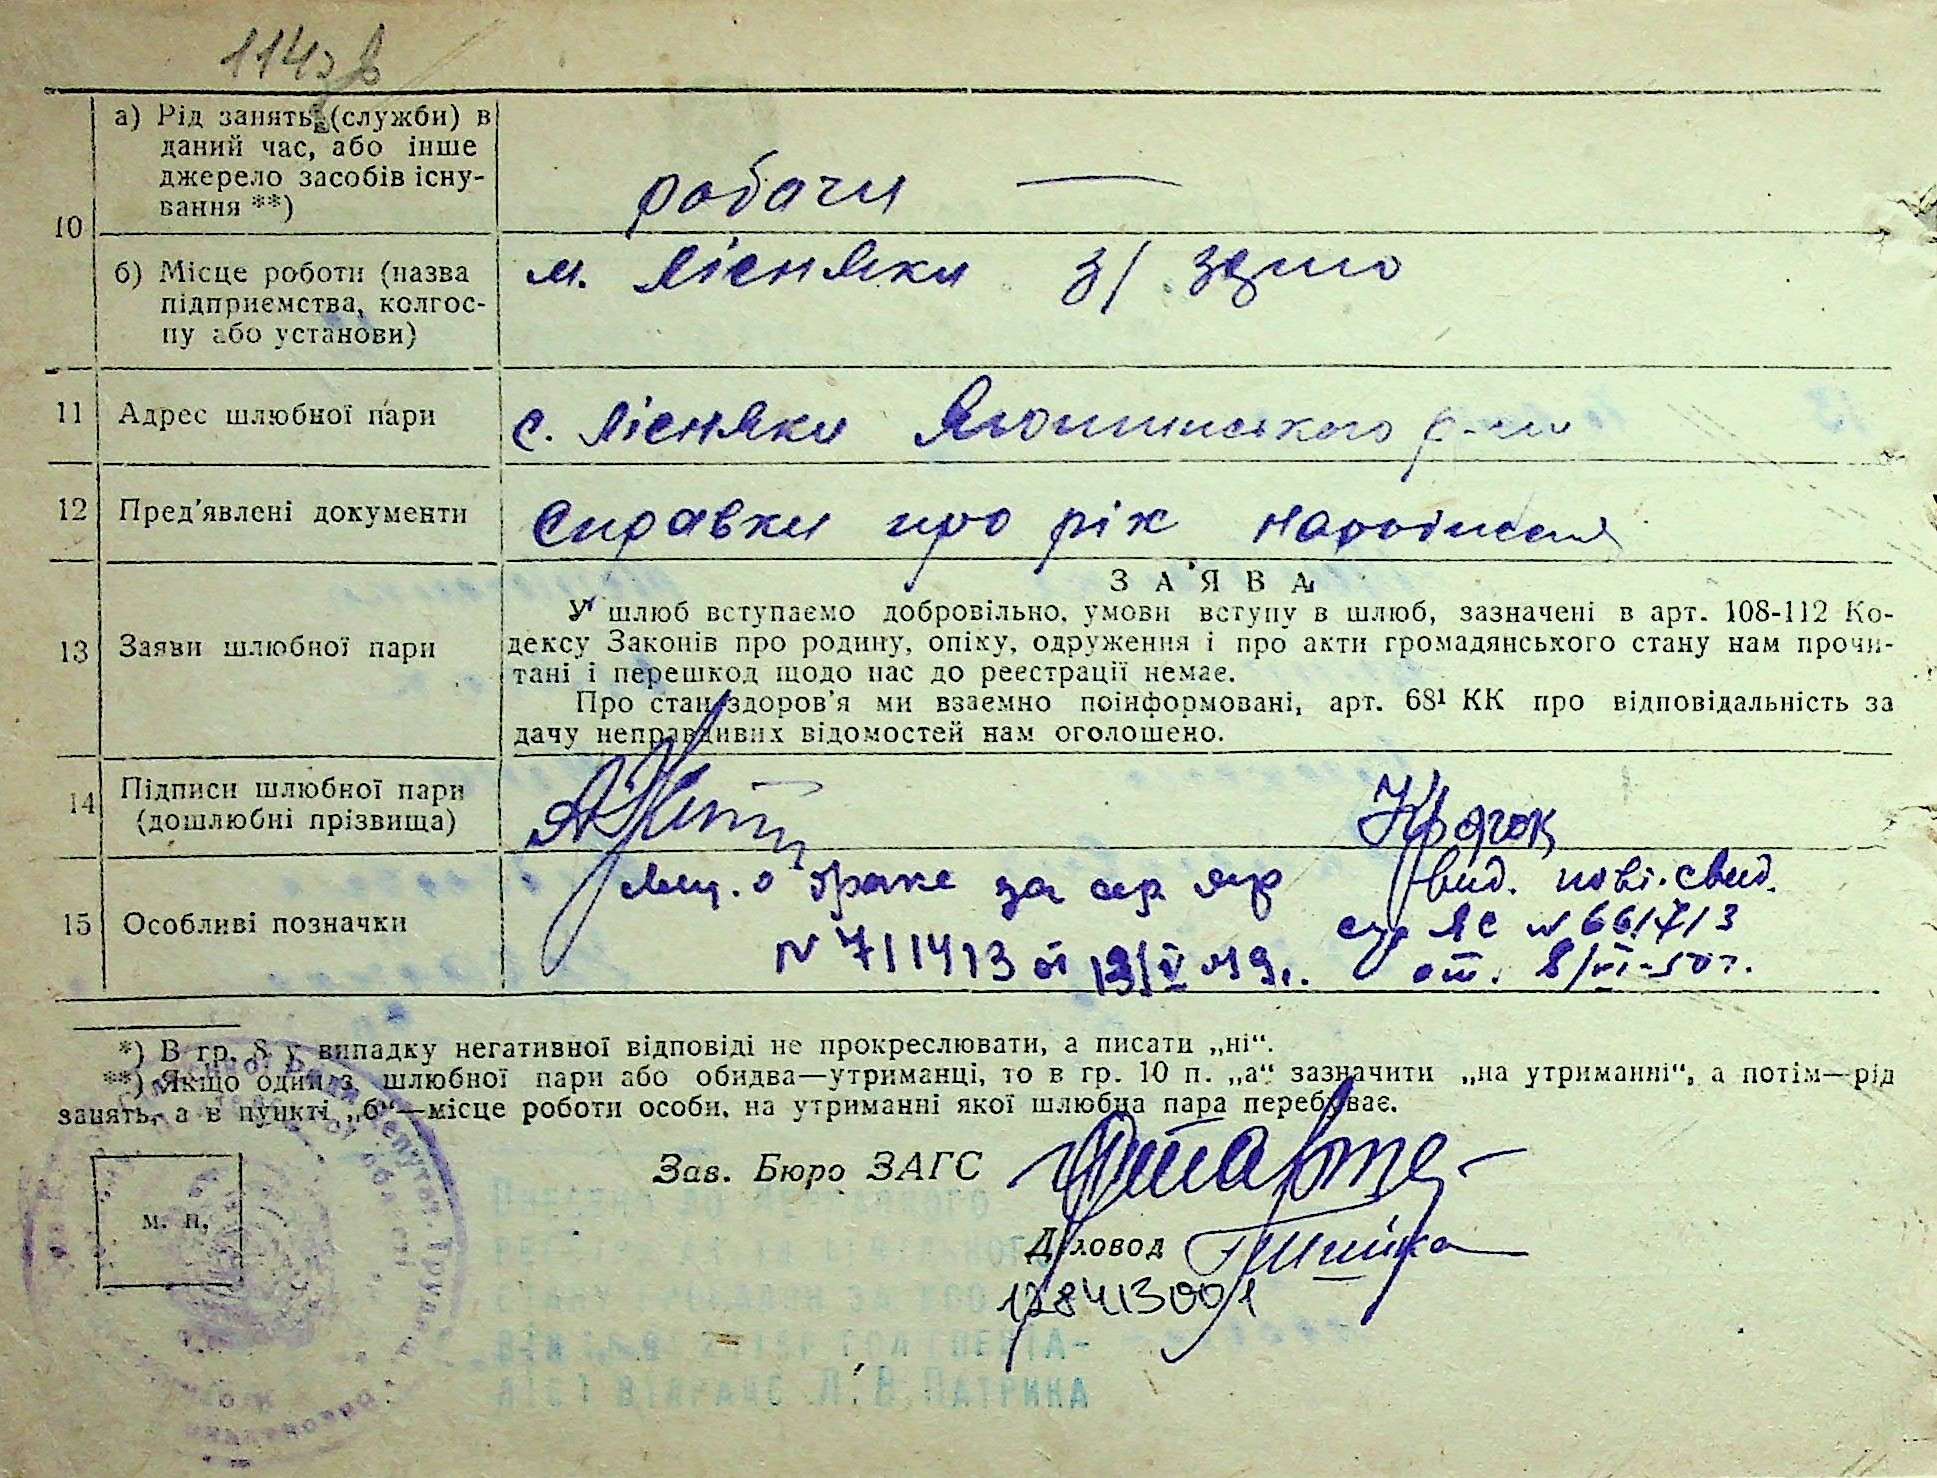 10
а) Рід занять (служби) в
даний час, або інше
джерело засобів існу-
вання **)
робочи —
б) Місце роботи (назва
підприємства, колгос-
пу або установи)
м. Лісняки з/
11 Адрес шлюбної пари
с. Лісняки Яготинського р-ну
12 Пред'явлені документи
Справки про рік народження
13 Заяви шлюбної пари
ЗАЯВА
У шлюб вступаємо добровільно, умови вступу в шлюб, зазначені в арт. 108-112 Ко-
дексу Законів про родину, опіку, одруження і про акти громадянського стану нам прочи-
тані і перешкод щодо нас до реєстрації немає.
Про стан здоров'я ми взаємно поінформовані, арт. 68¹ КК про відповідальність за
дачу неправдивих відомостей нам оголошено.
14 Підписи шлюбної пари
(дошлюбні прізвища)
15 Особливі позначки
о браке за
N 711413 от 13/V 49г.
вид. нові. свид.
ЯС N 661713
от. 8/VI-50г.
*) В гр. 8 у випадку негативної відповіді не прокреслювати, а писати „ні“.
**) Якщо один з шлюбної пари або обидва—утриманці, то в гр. 10 п. „а“ зазначити „на утриманні“, а потім—рід
занять, а в пункті „б“—місце роботи особи, на утриманні якої шлюбна пара перебуває.
Зав. Бюро ЗАГС
м. п.
Діловод
128413001
Л. В. ПАТРИНА